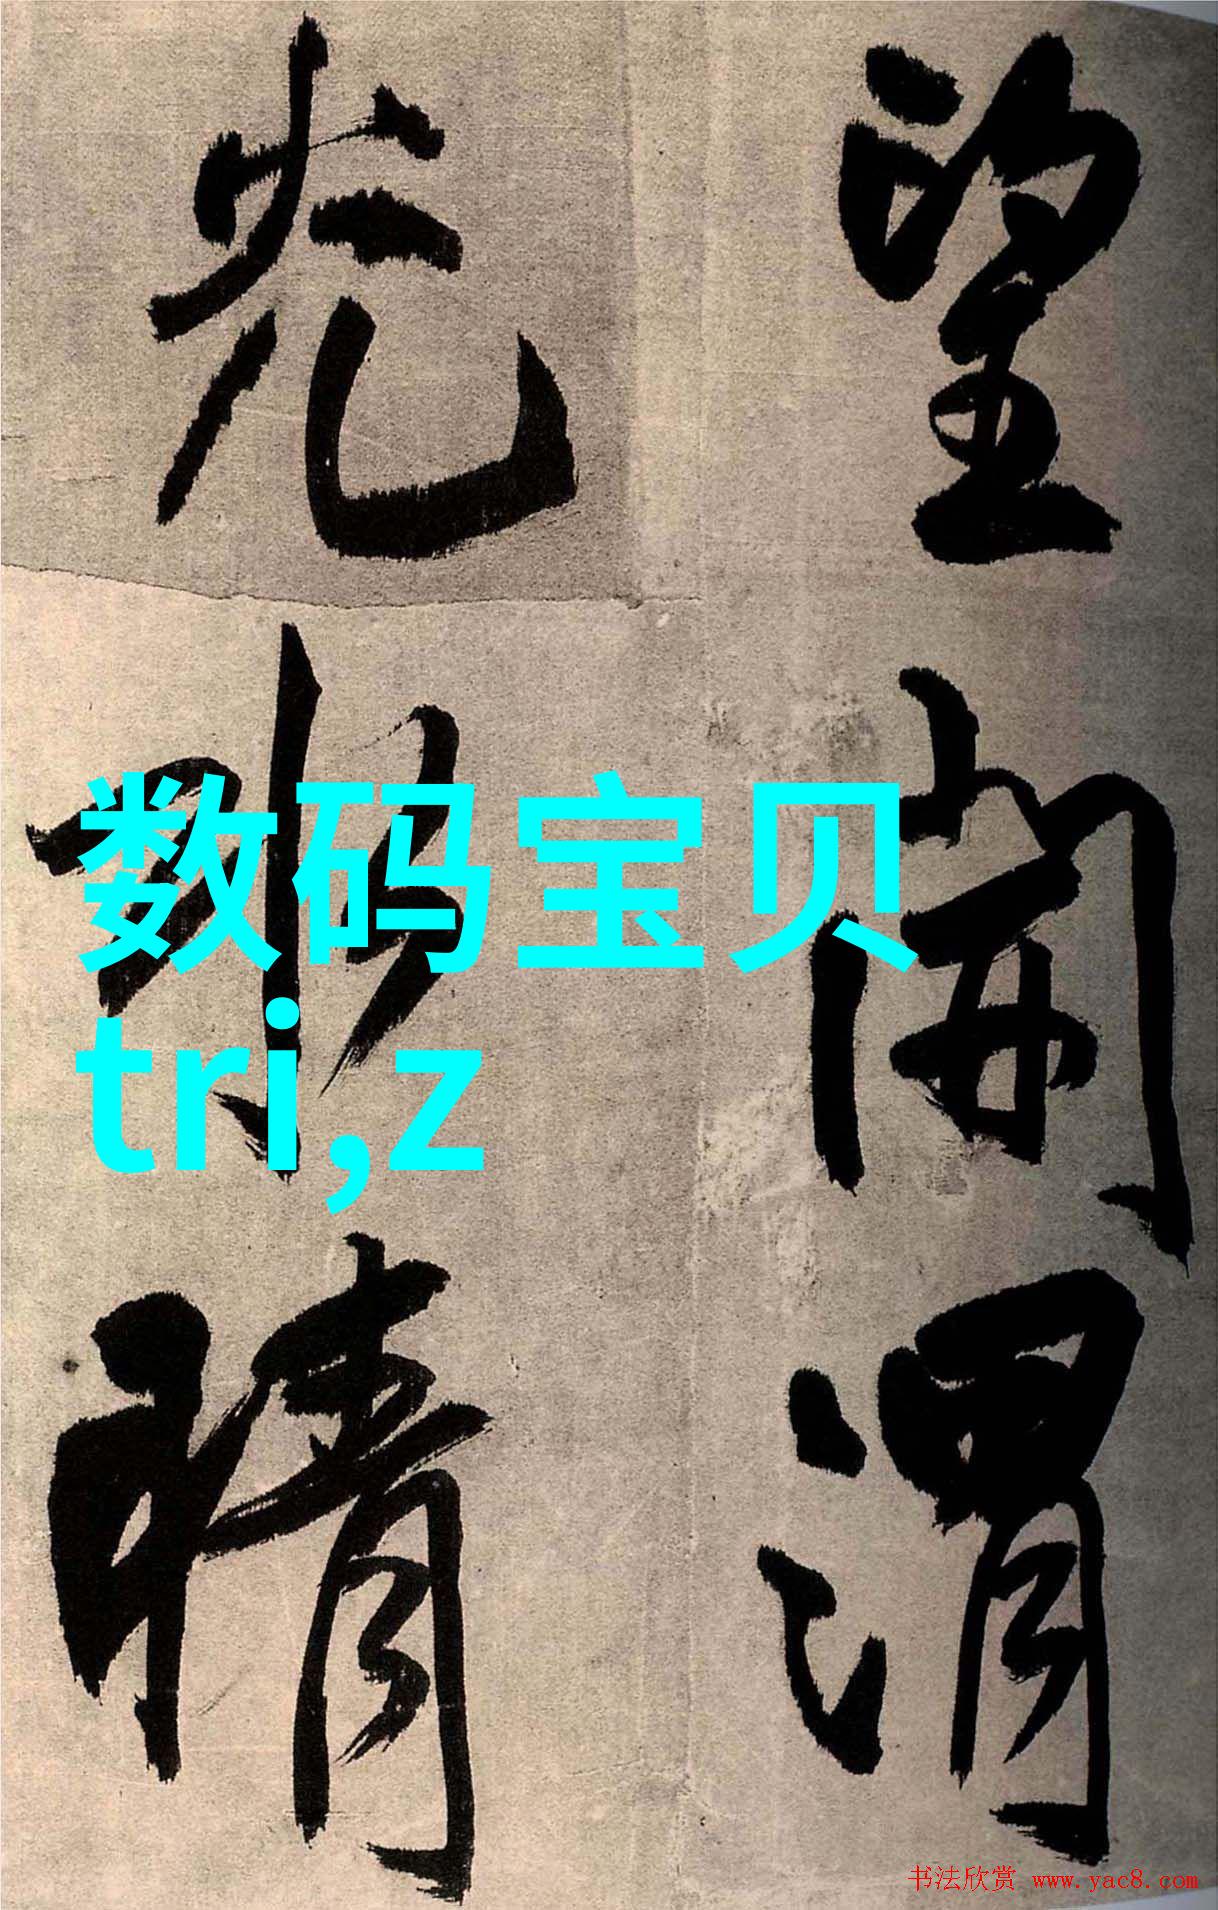 望開渭
光晴
数码宝贝
tri,z
书法欣赏 www.yac8.com